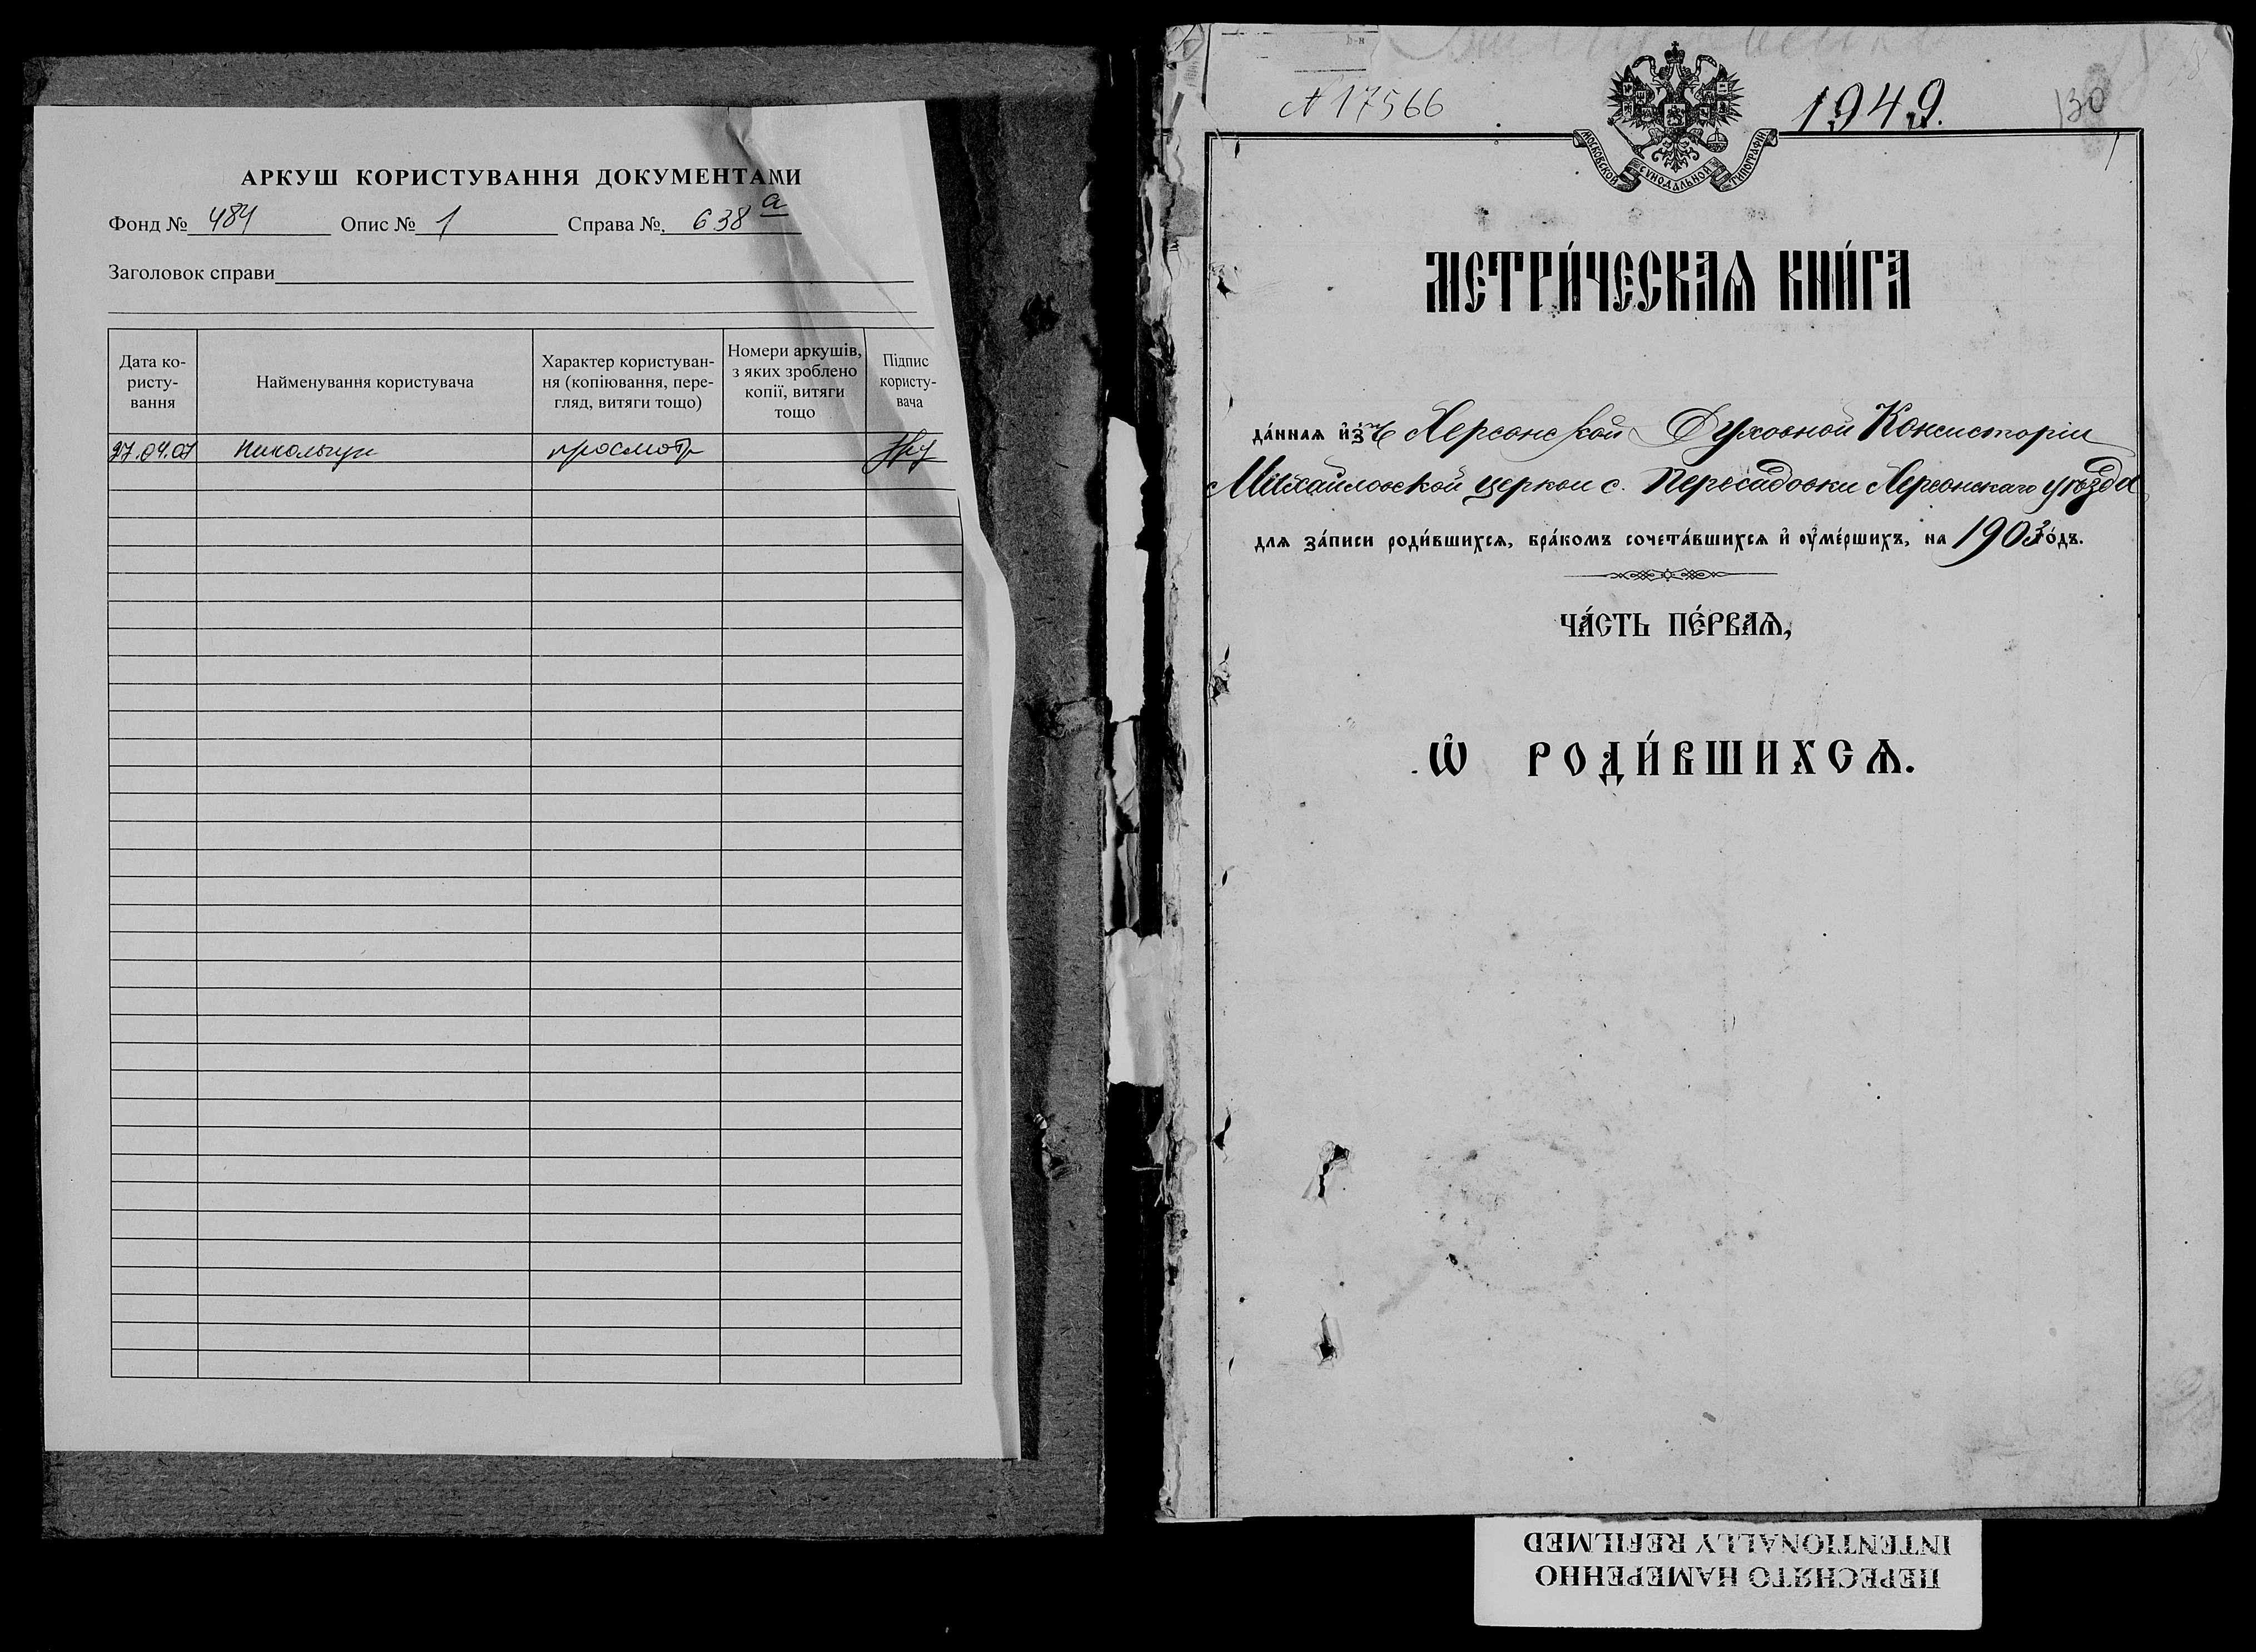 АРКУШ КОРИСТУВАННЯ ДОКУМЕНТАМИ
Фонд № 484 Опис № 1 Справа № 638 а
Заголовок справи
Дата ко-
ристу-
вання
Найменування користувача
Характер користуван-
ня (копіювання, пере-
гляд, витяги тощо)
Номери аркушів,
з яких зроблено
копії, витяги
тощо
Підпис
користу-
вача
27.04.07 просмотр
№ 17566
1949.
130
МОСКОВСКОЙ СѴНОДАЛЬНОЙ ТИПОГРАФІИ
МЕТРИ́ЧЕСКАѦ КНИ́ГА
да́ннаѧ и҆зъ Херсонской Духовной Консисторіи
Михайловской церкви с. Пересадовки Херсонскаго уѣзда
длѧ за́писи роди́вшихсѧ, бра́комъ сочета́вшихсѧ и҆ оу҆ме́ршихъ, на 1903 го́дъ.
ЧА́СТЬ ПЕ́РВАѦ,
Ѡ҆ РОДИ́ВШИХСѦ.
ПЕРЕСНЯТО НАМЕРЕННО
INTENTIONALLY REFILMED